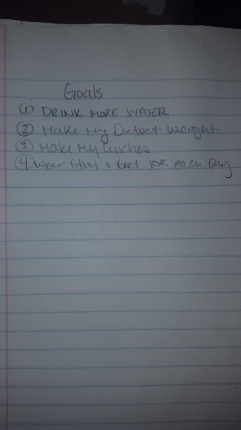 Goals
① DRINK MORE WATER
② Make My Dietbet Weight
③ Make My Lunches
④ Wear fitbit & Get 10K each Day